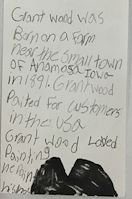 Grant wood was
Born on a Farm
near the Small town
OF Anamosa Iowa
in 1891. Grant wood
Paited For customers
in the USA
Grant wood Loved
Painting
he Pain
his